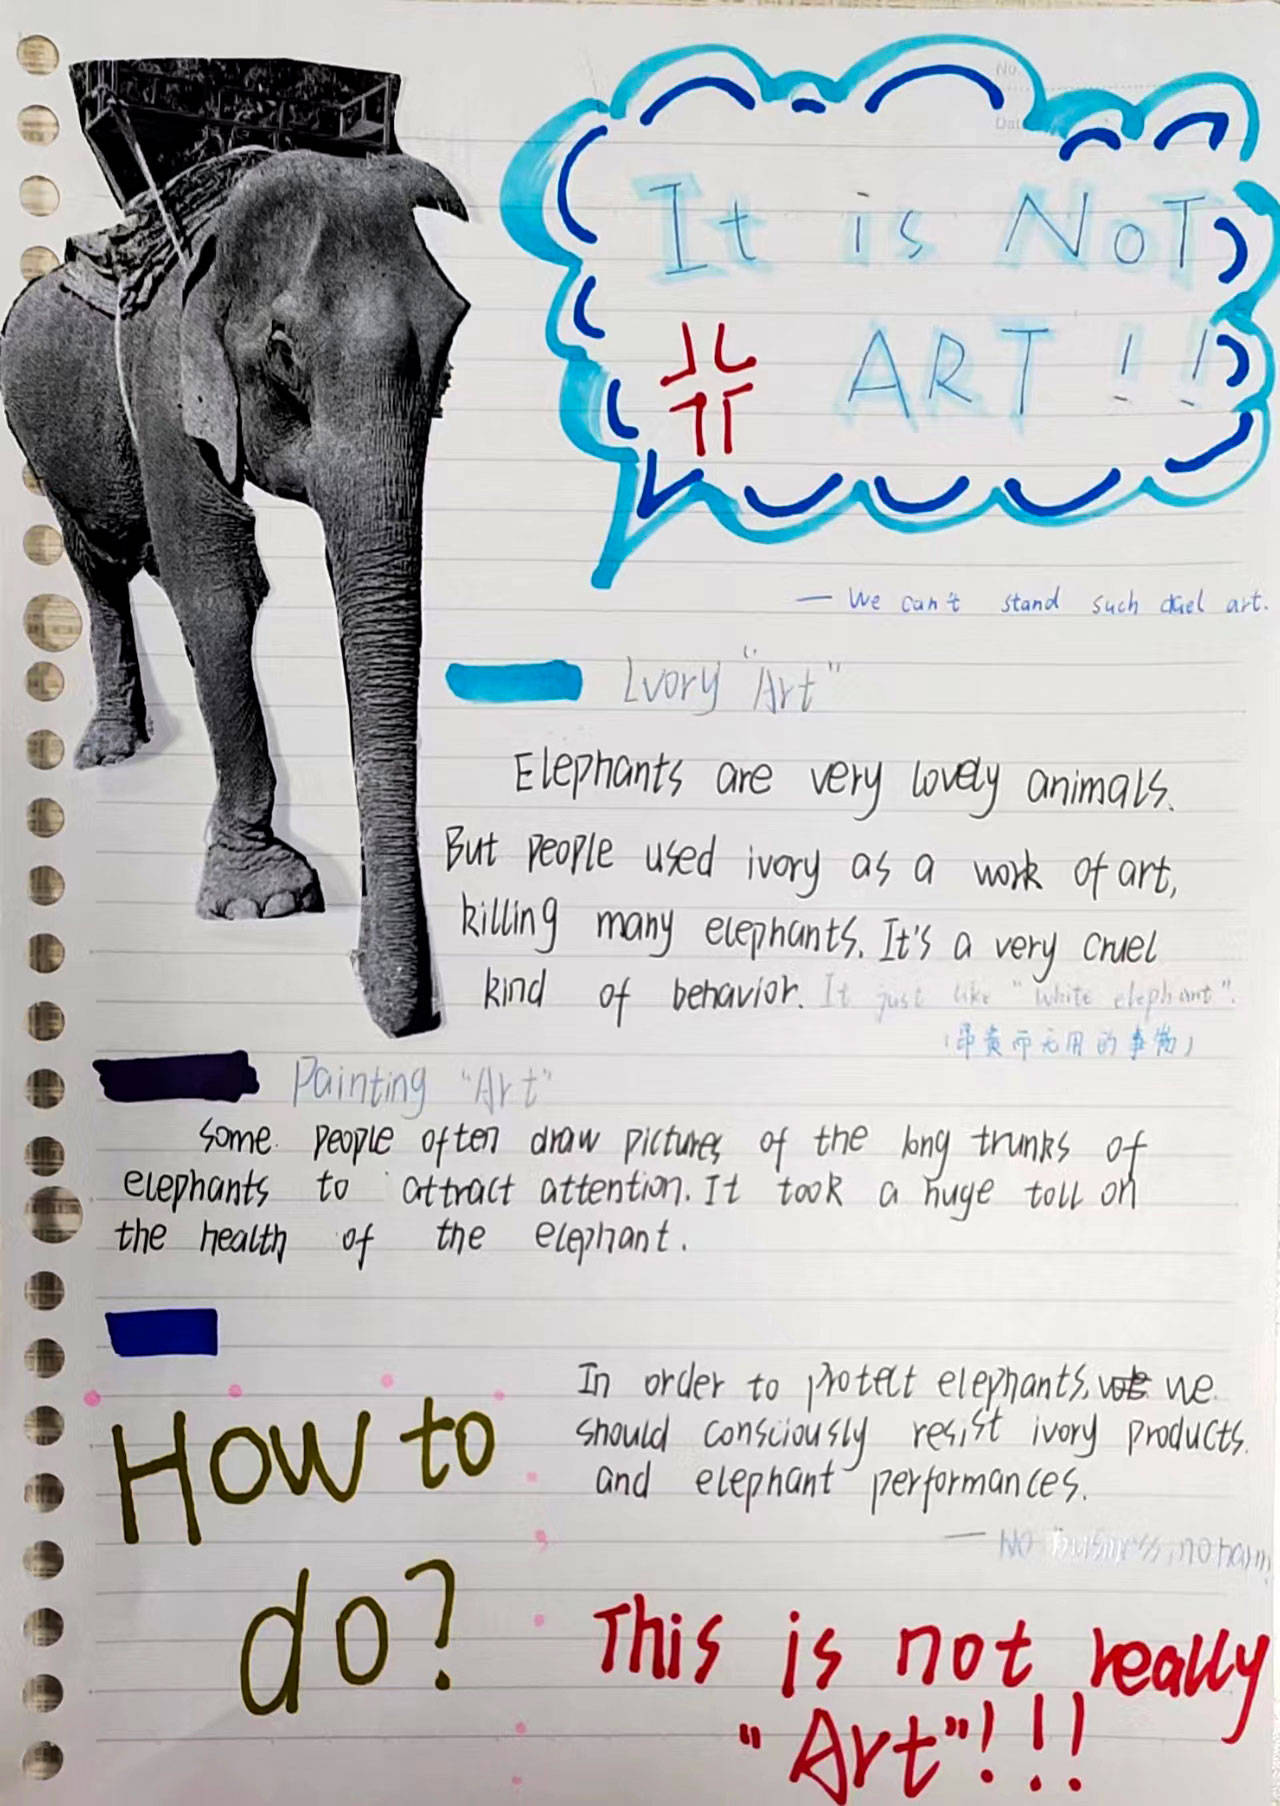 No.
Date
It is NOT
ART!!
— We can't stand such cruel art.
Ivory "Art"
Elephants are very lovely animals.
But people used ivory as a work of art,
killing many elephants. It's a very cruel
kind of behavior. It just like "white elephant".
(昂贵而无用的事物)
Painting "Art"
Some people often draw pictures of the long trunks of
elephants to attract attention. It took a huge toll on
the health of the elephant.
In order to protect elephants, we
should consciously resist ivory products
and elephant performances.
— No business, no harm
How to
do?
This is not really
"Art"!!!